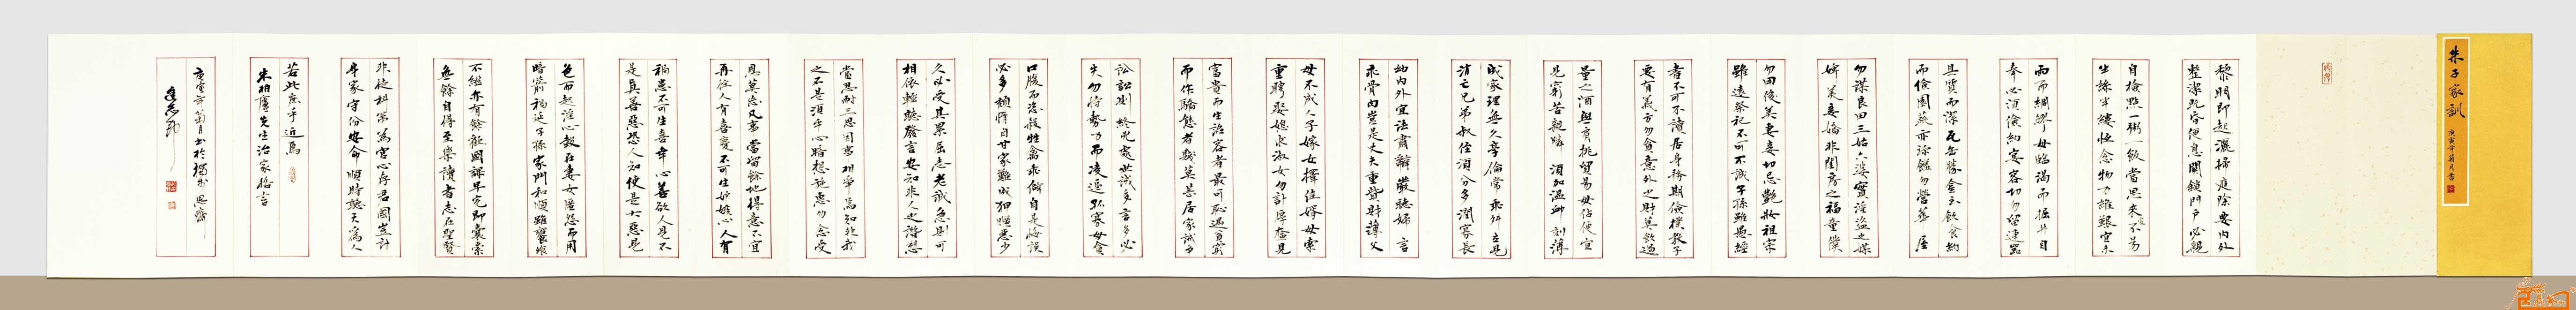 朱子家訓
庚寅年菊月書
黎明即起灑掃庭除要内外
整潔既昏便息關鎖門户必親
自檢點一粥一飯當思來處不易
半絲半縷恒念物力維艱宜未
雨而綢繆毋臨渴而掘井自
奉必須儉約宴客切勿留連器
具質而潔瓦缶勝金玉飲食約
而儉園蔬亦珍饈勿營華屋
勿謀良田三姑六婆實淫盜之媒
婢美妾嬌非閨房之福童僕
勿用俊美妻妾切忌艷妝祖宗
雖遠祭祀不可不誠子孫雖愚經
書不可不讀居身務期儉樸教子
要有義方勿貪意外之財莫飲過
量之酒與肩挑貿易毋佔便宜
見窮苦親鄰須加溫卹刻薄
成家理無久享倫常乖舛立見
消亡兄弟叔侄須分多潤寡長
幼内外宜法肅辭嚴聽婦言
乖骨肉豈是丈夫重貲財薄父
母不成人子嫁女擇佳婿毋索
重聘娶媳求淑女勿計厚奩見
富貴而生諂容者最可恥遇貧窮
而作驕態者賤莫甚居家戒爭
訟訟則終凶處世戒多言言多必
失勿恃勢力而凌逼孤寡毋貪
口腹而恣殺牲禽乖僻自是悔誤
必多頹惰自甘家難成狎暱惡少
久必受其累屈志老誠急則可
相依輕聽發言安知非人之譖愬
當忍耐三思因事相爭焉知非我
之不是須平心暗想施惠勿念受
恩莫忘凡事當留餘地得意不宜
再往人有喜慶不可生妒嫉心人有
禍患不可生喜幸心善欲人見不
是真善惡恐人知便是大惡見
色而起淫心報在妻女匿怨而用
暗箭禍延子孫家門和順雖饔飧
不繼亦有餘歡國課早完即囊橐
無餘自得至樂讀書志在聖賢
非徒科第為官心存君國豈計
身家守份安命順時聽天為人
若此庶乎近焉
朱柏廬先生治家格言
庚寅年菊月書於